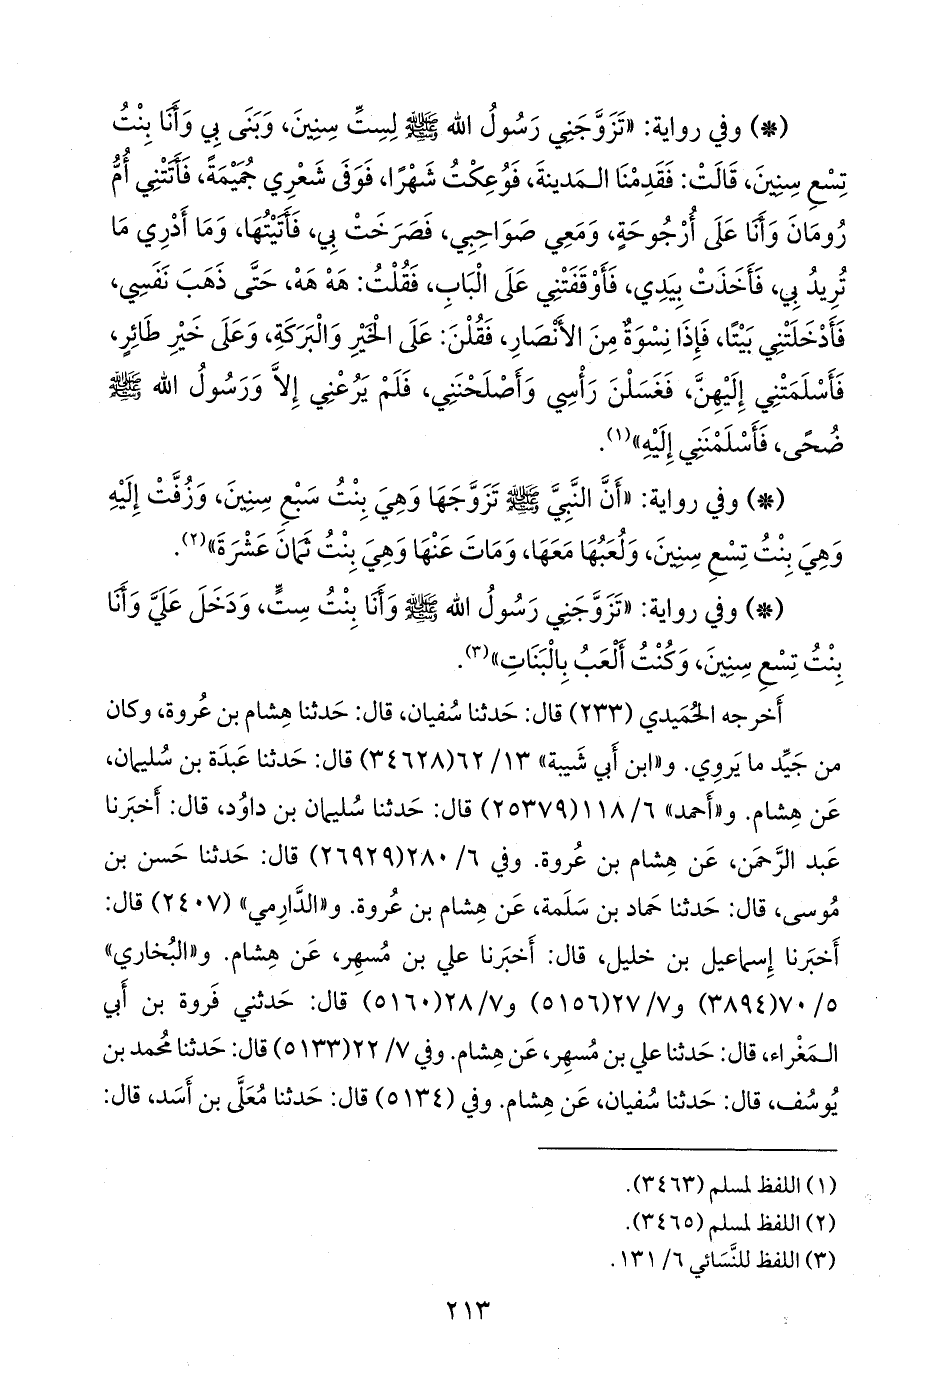 (*) وفي رواية: «تَزَوَّجَنِي رَسُولُ الله ﷺ لِسِتِّ سِنِينَ، وَبَنَى بِي وَأَنَا بِنْتُ
تِسْعِ سِنِينَ، قَالَتْ: فَقَدِمْنَا الـمَدينةَ، فَوُعِكْتُ شَهْرًا، فَوَفَى شَعْرِي جُمَيْمَةً، فَأَتَتْنِي أُمُّ
رُومَانَ وَأَنَا عَلَى أُرْجُوحَةٍ، وَمَعِي صَوَاحِبِي، فَصَرَخَتْ بِي، فَأَتَيْتُهَا، وَمَا أَدْرِي مَا
تُرِيدُ بِي، فَأَخَذَتْ بِيَدِي، فَأَوْقَفَتْنِي عَلَى الْبَابِ، فَقُلْتُ: هَهْ هَهْ، حَتَّى ذَهَبَ نَفَسِي،
فَأَدْخَلَتْنِي بَيْتًا، فَإِذَا نِسْوَةٌ مِنَ الأَنْصَارِ، فَقُلْنَ: عَلَى الْخَيْرِ وَالْبَرَكَةِ، وَعَلَى خَيْرِ طَائِرٍ،
فَأَسْلَمَتْنِي إِلَيْهِنَّ، فَغَسَلْنَ رَأْسِي وَأَصْلَحْنَنِي، فَلَمْ يَرُعْنِي إِلاَّ وَرَسُولُ الله ﷺ
ضُحًى، فَأَسْلَمْنَنِي إِلَيْهِ»(١).
(*) وفي رواية: «أَنَّ النَّبِيَّ ﷺ تَزَوَّجَهَا وَهِيَ بِنْتُ سَبْعِ سِنِينَ، وَزُفَّتْ إِلَيْهِ
وَهِيَ بِنْتُ تِسْعِ سِنِينَ، وَلُعَبُهَا مَعَهَا، وَمَاتَ عَنْهَا وَهِيَ بِنْتُ ثَمَانَ عَشْرَةَ»(٢).
(*) وفي رواية: «تَزَوَّجَنِي رَسُولُ الله ﷺ وَأَنَا بِنْتُ سِتٍّ، وَدَخَلَ عَلَيَّ وَأَنَا
بِنْتُ تِسْعِ سِنِينَ، وَكُنْتُ أَلْعَبُ بِالْبَنَاتِ»(٣).
أَخرجه الحُمَيدي (٢٣٣) قال: حَدثنا سُفيان، قال: حَدثنا هِشام بن عُروة، وكان
من جَيِّد ما يَروِي. و«ابن أَبي شَيبة» ١٣/ ٦٢(٣٤٦٢٨) قال: حَدثنا عَبدَة بن سُليمان،
عَن هِشام. و«أَحمد» ٦/ ١١٨(٢٥٣٧٩) قال: حَدثنا سُليمان بن داوُد، قال: أَخبَرنا
عَبد الرَّحمَن، عَن هِشام بن عُروة. وفي ٦/ ٢٨٠(٢٦٩٢٩) قال: حَدثنا حَسن بن
مُوسى، قال: حَدثنا حَماد بن سَلَمة، عَن هِشام بن عُروة. و«الدَّارِمي» (٢٤٠٧) قال:
أَخبَرنا إِسماعيل بن خليل، قال: أَخبَرنا علي بن مُسهِر، عَن هِشام. و«البُخاري»
٥/ ٧٠(٣٨٩٤) و٧/ ٢٧(٥١٥٦) و٧/ ٢٨(٥١٦٠) قال: حَدثني فَروة بن أَبي
الـمَغْراء، قال: حَدثنا علي بن مُسهِر، عَن هِشام. وفي ٧/ ٢٢(٥١٣٣) قال: حَدثنا مُحمد بن
يُوسُف، قال: حَدثنا سُفيان، عَن هِشام. وفي (٥١٣٤) قال: حَدثنا مُعَلَّى بن أَسَد، قال:
(١) اللفظ لمسلم (٣٤٦٣).
(٢) اللفظ لمسلم (٣٤٦٥).
(٣) اللفظ للنَّسَائي ٦/ ١٣١.
٢١٣